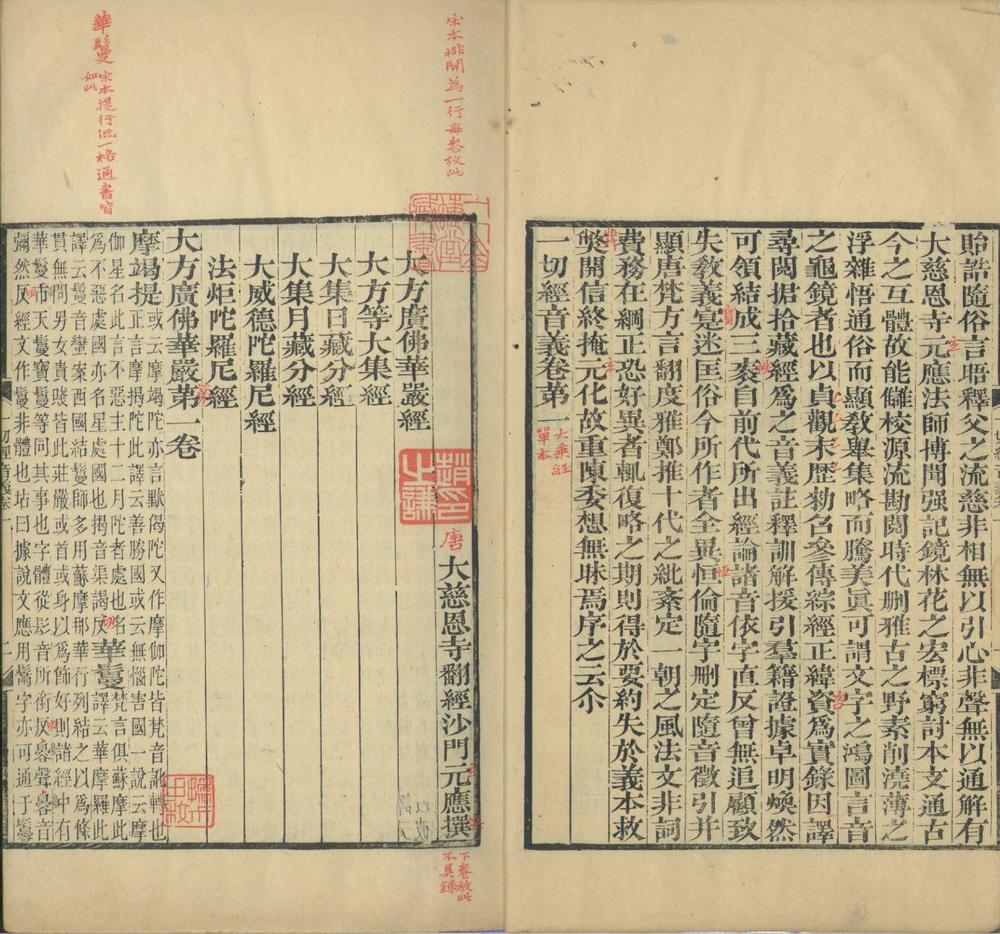 貽誥隨俗言晤釋父之流慈非相無以引心非聲無以通解有
大慈恩寺元應法師博聞强記鏡林花之宏標窮討本支通古
今之互體故能讎校源流勘閱時代刪雅古之野素削澆薄之
浮雜悟通俗而顯敎舉集略而騰美眞可謂文字之鴻圖言音
之龜鏡者也以貞觀末歷勑召參傳綜經正緯資爲實錄因譯
尋閱捃拾藏經爲之音義註釋訓解援引羣籍證據卓明煥然
可領結成三袠自前代所出經論諸音依字直反曾無追顧致
失敎義寔迷匡俗今所作者全異恒倫隨字刪定隨音徵引并
顯唐梵方言翻度雅鄭推十代之紕紊定一朝之風法文非詞
費務在綱正恐好異者輒復略之期則得於要約失於義本救
弊開信終掩元化故重陳委想無昧焉序之云尒
一切經音義卷第一
大乘經單本
宋本排開爲一行每卷放此
唐
大慈恩寺翻經沙門元應撰
下卷放此不具錄
趙之謙印
大方廣佛華嚴經
大方等大集經
大集日藏分經
大集月藏分經
大威德陀羅尼經
法炬陀羅尼經
大方廣佛華嚴第一卷
摩竭提或云摩竭陀亦言默偈陀又作摩伽陀皆梵音訛轉也
正言摩揭陀此譯云善勝國或云無惱害國一說云摩
伽星名此言不惡主十二月陀者處也名
爲不惡處國亦名星處國也揭音渠謁反
華鬘梵言俱蘇摩此
譯云華摩羅此
譯云鬘音蠻案西國結鬘師多用蘇摩那華行列結之以爲條
貫無問男女貴賤皆此莊嚴或首或身以爲飾好則諸經中有
華鬘市天鬘寶鬘等同其事也字體從髟音所銜反㝱聲㝱音
彌然反經文作鬘非體也玷曰據說文應用鬗字亦可通于鬘
一切經音義卷一
二
華鬘宋本提行低一格通書皆如此